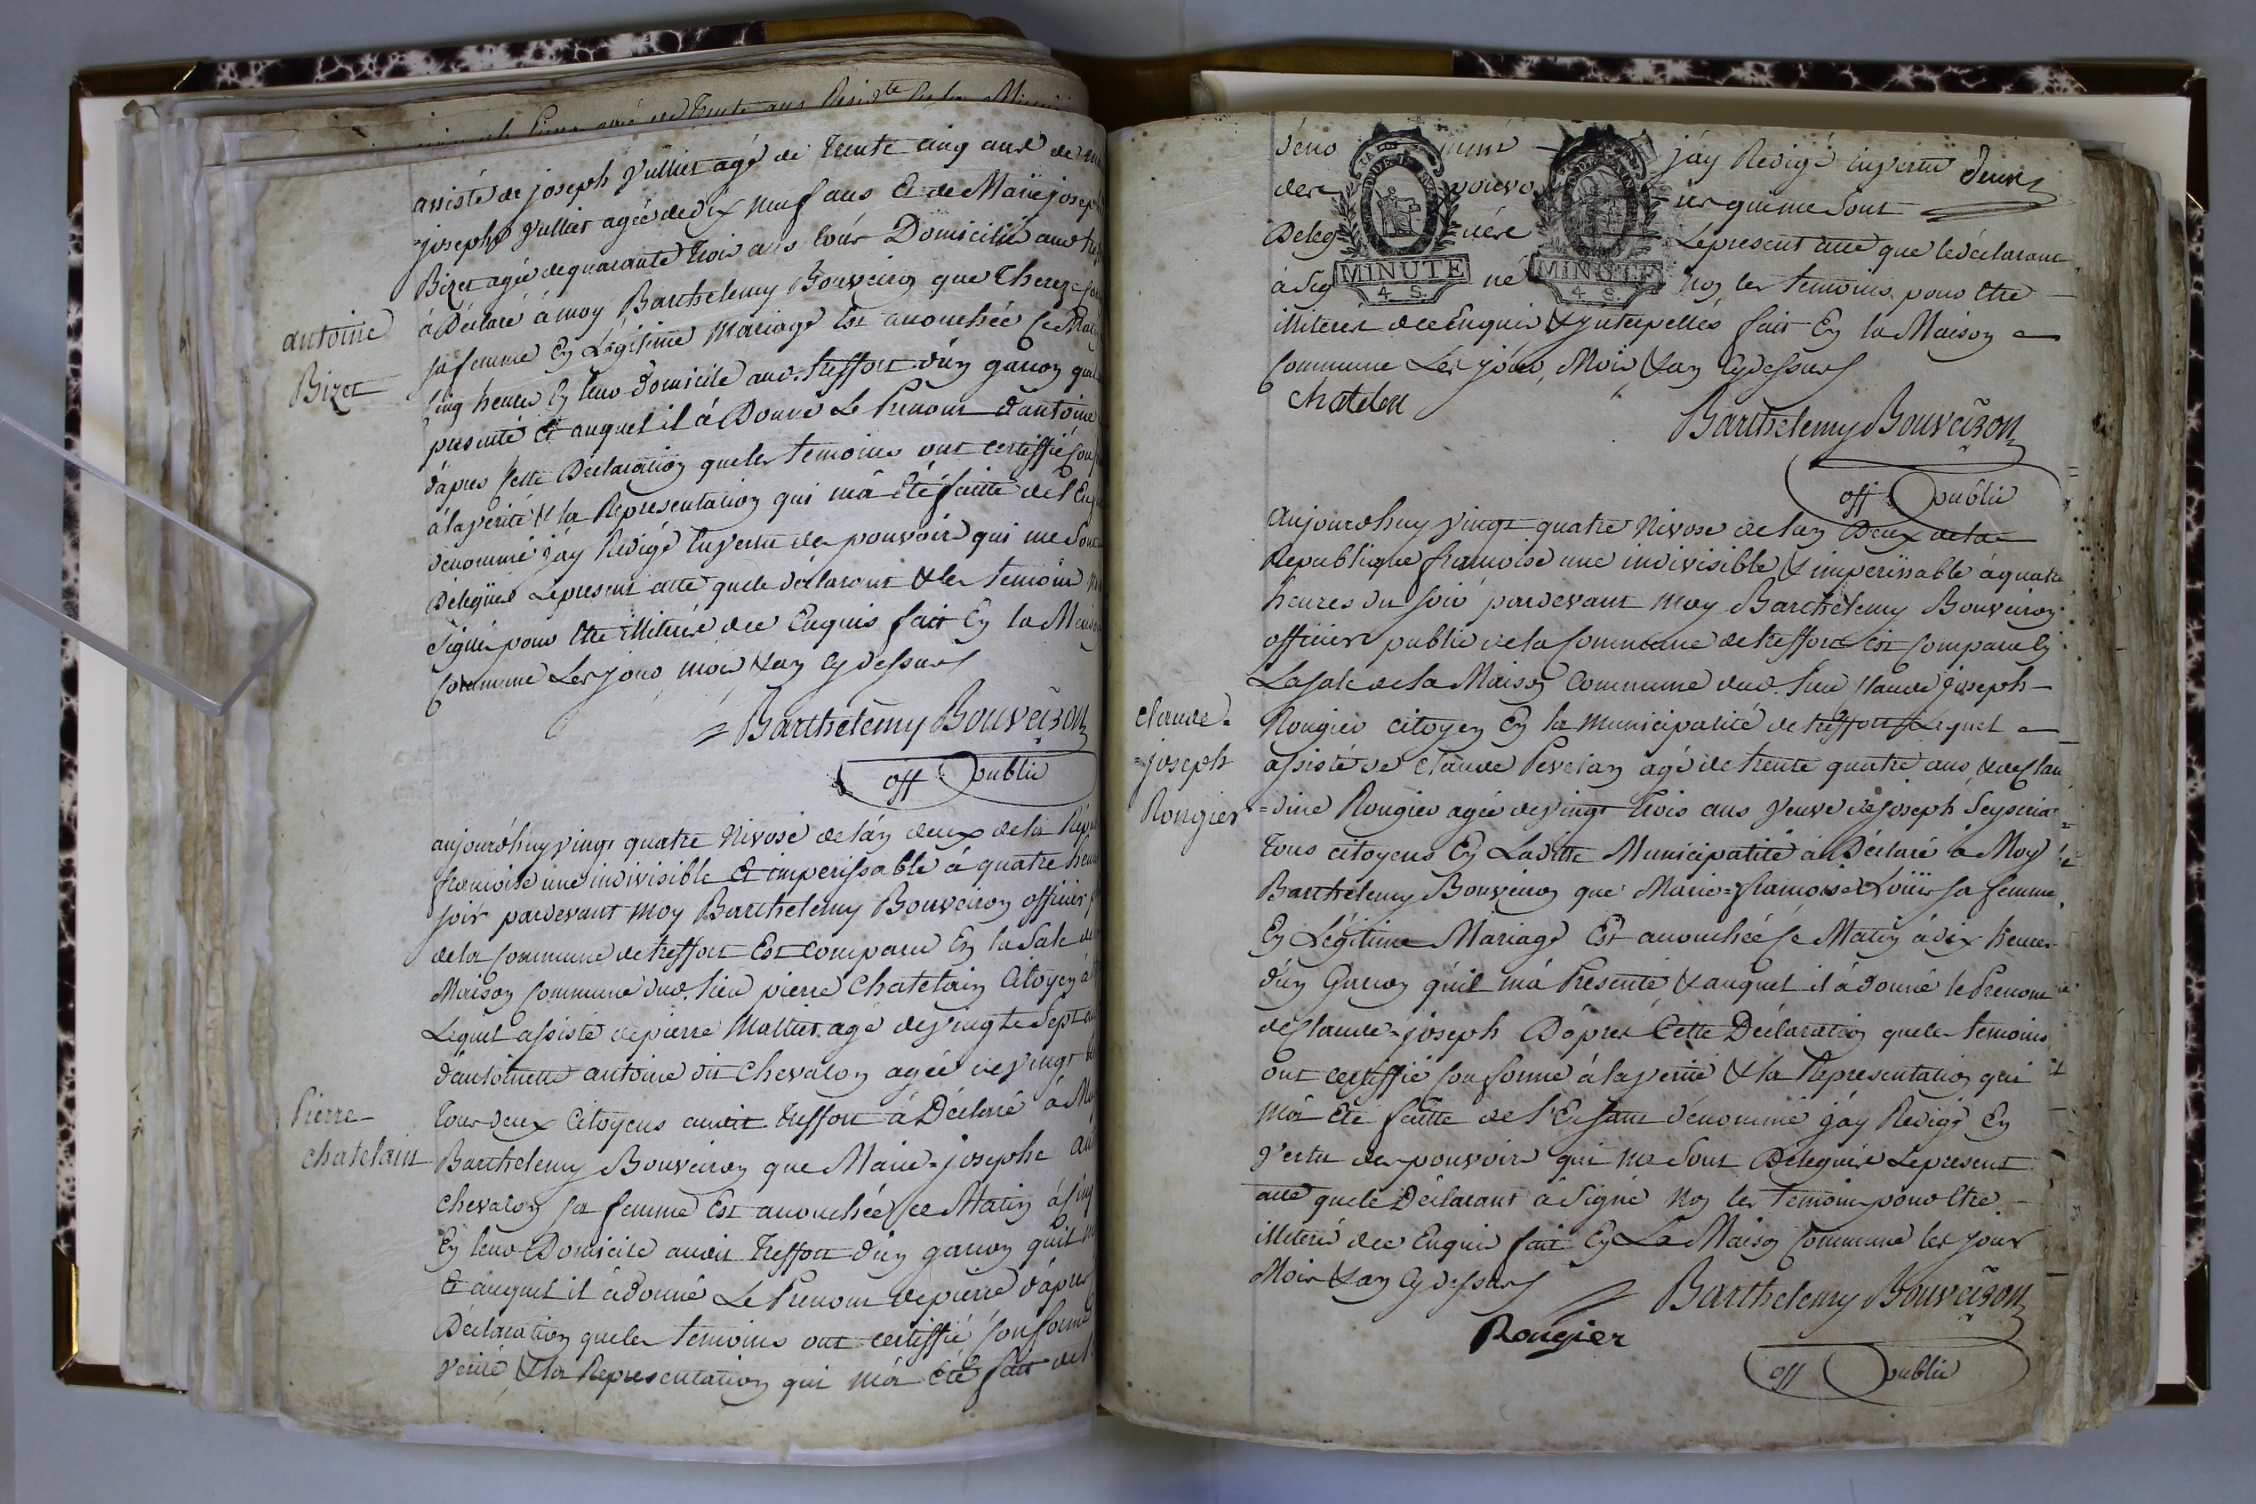 assisté de joseph Vulliet agé de Trente cinq ans de
joseph Vulliet agée de dix neuf ans & de Marie joseph
Bizet agée de quarante Trois ans tous Domiciliés aud. tref
à Déclaré à moy Barthelemy Bouveiron que Thereze
antoine
Bizet
sa femme En Légitime Mariage Est acouchée Ce Matin
Cinq heures En leur domicile aud. treffort d'un garcon quil
presenté Et auquel il à Donné Le Prenom d'antoine
d'apres Cette Déclaration que les temoins ont certiffié Conf
à la verité & la Representation qui má été faitte de l'En
dénommé j'áy Redigé En vertu des pouvoirs qui me Sont
Délegués Le present acte que le déclarant & les temoins n
Signé pour Etre illiterés de ce Enquis fait En la Maison
Commune Les jour, mois & an Cy dessus
Barthelemy Bouveiron
off public
aujourd'huy vingt quatre Nivose de l'an deux de la Répu
francoise une indivisible Et imperissable à quatre heures
soir pardevant moy Barthelemy Bouveiron officier p
de la Commune de treffort Est comparu En la Sale de
Maison Commune dud. lieu pierre Chatelain Citoyen à
Lequel assisté de pierre Mallet agé de vingt & Sept ans
d'antoinette antoine dit Chevalon agée de vingt
Pierre
chatelain
Tous deux Citoyens audit treffort à Déclaré à Moy
Barthelemy Bouveiron que Marie=josephe
Chevalon sa femme Est acouchée ce Matin à Cinq
En leur Domicile audit Treffort d'un garcon quil m
Et auquel il à donné Le Prenom de pierre d'apres
Déclaration que les temoins ont certiffié Conforme
verité & la Representation qui má été fait de l'
déno mmé j'áy Redigé En vertu
des pouvo irs qui me Sont
Deleg Le present acte que le déclarant
à Sig né Non les temoins pour Etre
MINUTE
4 S.
MINUTE
4 S.
illiterés de ce Enquis & jnterpellés fait En la Maison
Commune Les jour, Mois & an Cy dessus
chatelen
Barthelemy Bouveiron
off public
Aujourd'huy vingt quatre Nivose de l'an Deux de la
Republique francoise une indivisible & imperissable à quatre
heures du soir pardevant moy Barthelemy Bouveiron
officier public de la Commune de treffort Est Comparu En
La sale de la Maison Commune dud. lieu Claude joseph
claude=
=joseph
Rongier
Rongier citoyen En la Municipalité de treffort Lequel
assisté de Claude Pevelan agé de trente quatre ans & de Clau
=dine Rongier agée de vingt Trois ans Veuve de joseph
Tous citoyens En Laditte Municipalité à Déclaré à Moy
Barthelemy Bouveiron que Marie=francoise sa femme
En Légitime Mariage Est acouchée Ce Matin à dix heures
d'un Garcon qu'il má Presenté & auquel il à donné le Prenom
de Claude=joseph D'après Cette Déclaration que les temoins
ont certiffié Conforme à la verité & la Representation qui
m'à Eté faitte de l'Enfant dénommé j'áy Redigé En
vertu des pouvoirs qui me Sont Delegués Le present
acte que le Déclarant à Signé Non les temoins pour Etre
illiteré de ce Enquis fait En La Maison Commune les jour
Mois & an Cy dessus
Barthelemy Bouveiron
Rongier
off public